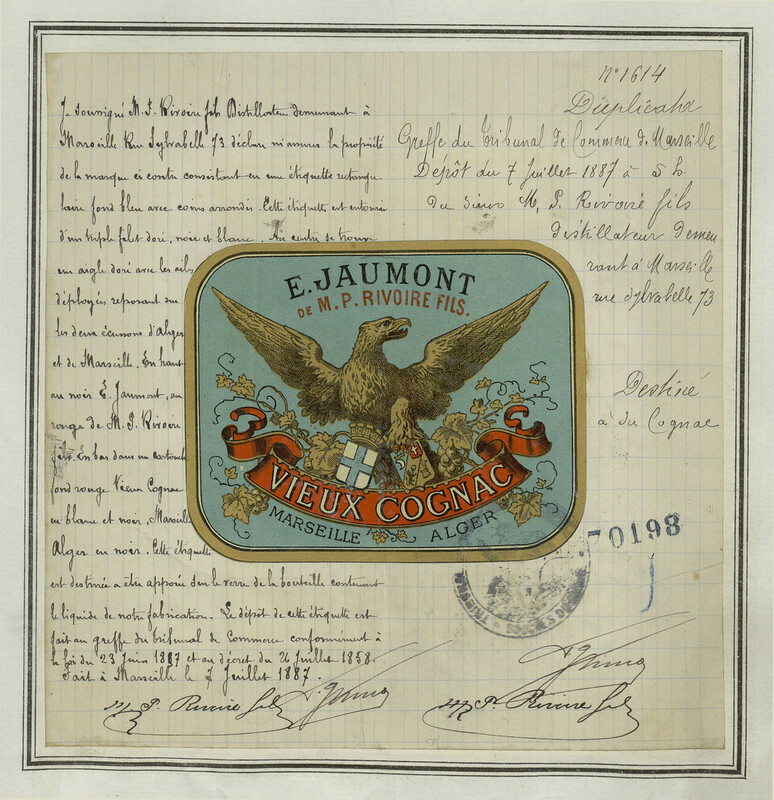 Nº 1614
Duplicata
Greffe du Tribunal de Commerce de Marseille
Dépôt du 7 Juillet 1887 à 5 h.
du sieur M. P. Rivoire fils
distillateur demeu
rant à Marseille
rue Sylvabelle 73
Destiné
à du Cognac
Je soussigné M. P. Rivoire fils Distillateur demeurant à
Marseille Rue Sylvabelle 73 déclare la propriété
de la marque ci contre consistant en une étiquette rectangu-
laire fond bleu avec coins arrondis. Cette étiquette est entourée
d'un triple filet doré, noir et blanc. Au centre se trouve
un aigle doré avec les ailes
déployées reposant sur
les deux écussons d'Alger
et de Marseille. En haut
au noir E. Jaumont, au
rouge de M. P. Rivoire
fils. En bas dans un cartouche
fond rouge Vieux Cognac
en blanc et noir, Marseille
Alger en noir. Cette étiquette
est destinée a être apposée sur le verre de la bouteille contenant
le liquide de notre fabrication. Le dépôt de cette étiquette est
fait au greffe du tribunal de Commerce conformément à
la loi du 23 Juin 1887 et au décret du 26 Juillet 1858.
Fait à Marseille le 7 Juillet 1887.
M. P. Rivoire fils
M. P. Rivoire fils
E. JAUMONT
DE M. P. RIVOIRE FILS.
VIEUX COGNAC
MARSEILLE ALGER
70198